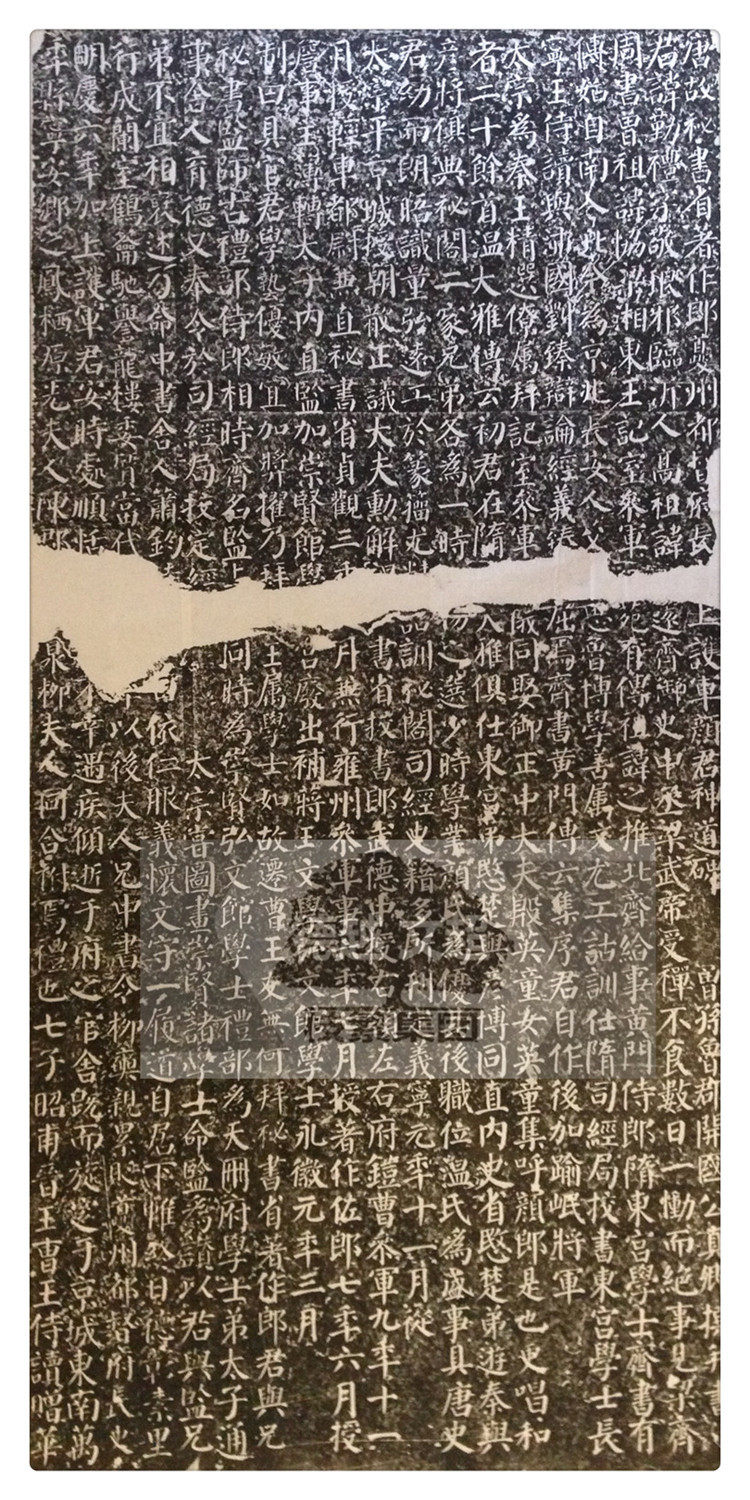 唐故秘書省著作郎夔州都督府長上護軍顏君神道碑 曾孫魯郡開國公真卿撰并書
君諱勤禮字敬琅邪臨沂人高祖諱遠齊御史中丞梁武帝受禪不食數日一慟而絕事見梁齊
周書曾祖諱協梁湘東王記室參軍苑有傳祖諱之推北齊給事黃門侍郎隋東宮學士齊書有
傳始自南入北今為京兆長安人父思魯博學善屬文尤工詁訓仕隋司經局校書東宮學士長
寧王侍讀與沛國劉臻辯論經義臻屈焉齊書黃門傳云集序君自作後加踰岷將軍
太宗為秦王精選僚屬拜記室參軍儀同娶御正中大夫殷英童女英童集呼顏郎是也更唱和
者二十餘首溫大雅傳云初君在隋大雅俱仕東宮弟愍楚與彥博同直內史省愍楚弟遊秦與
彥將俱典秘閣二家兄弟各為一時物之選少時學業顏氏為優其後職位溫氏為盛事具唐史
君幼而朗晤識量弘遠工於篆籀尤精詁訓秘閣司經史籍多所刊定義寧元年十一月從
太宗平京城授朝散正議大夫勳解褐書省校書郎武德中授右領左右府鎧曹參軍九年十一
月授輕車都尉兼直秘書省貞觀三年月兼行雍州參軍事六年七月授著作佐郎七年六月授
詹事主簿轉太子內直監加崇賢館學宮廢出補蔣王文學弘文館學士永徽元年三月
制曰具官君學藝優敏宜加獎擢乃拜王屬學士如故遷曹王友無何拜秘書省著作郎君與兄
秘書監師古禮部侍郎相時齊名監與同時為崇賢弘文館學士禮部為天冊府學士弟太子通
事舍人育德又奉令於司經局校定經 太宗嘗圖畫崇賢諸學士命監為讚以君與監兄
弟不宜相褒述乃命中書舍人蕭鈞曰依仁服義懷文守一履道自居下帷終日德彰素里
行成蘭室鶴籥馳譽龍樓委質當代年以後夫人兄中書令柳奭親累貶夔州都督府長史
明慶六年加上護軍君安時處順恬不幸遇疾傾逝于府之官舍既而旋窆于京城東南萬
年縣寧安鄉之鳳栖原先夫人陳郡泉柳夫人同合祔焉禮也七子昭甫晉王曹王侍讀贈華